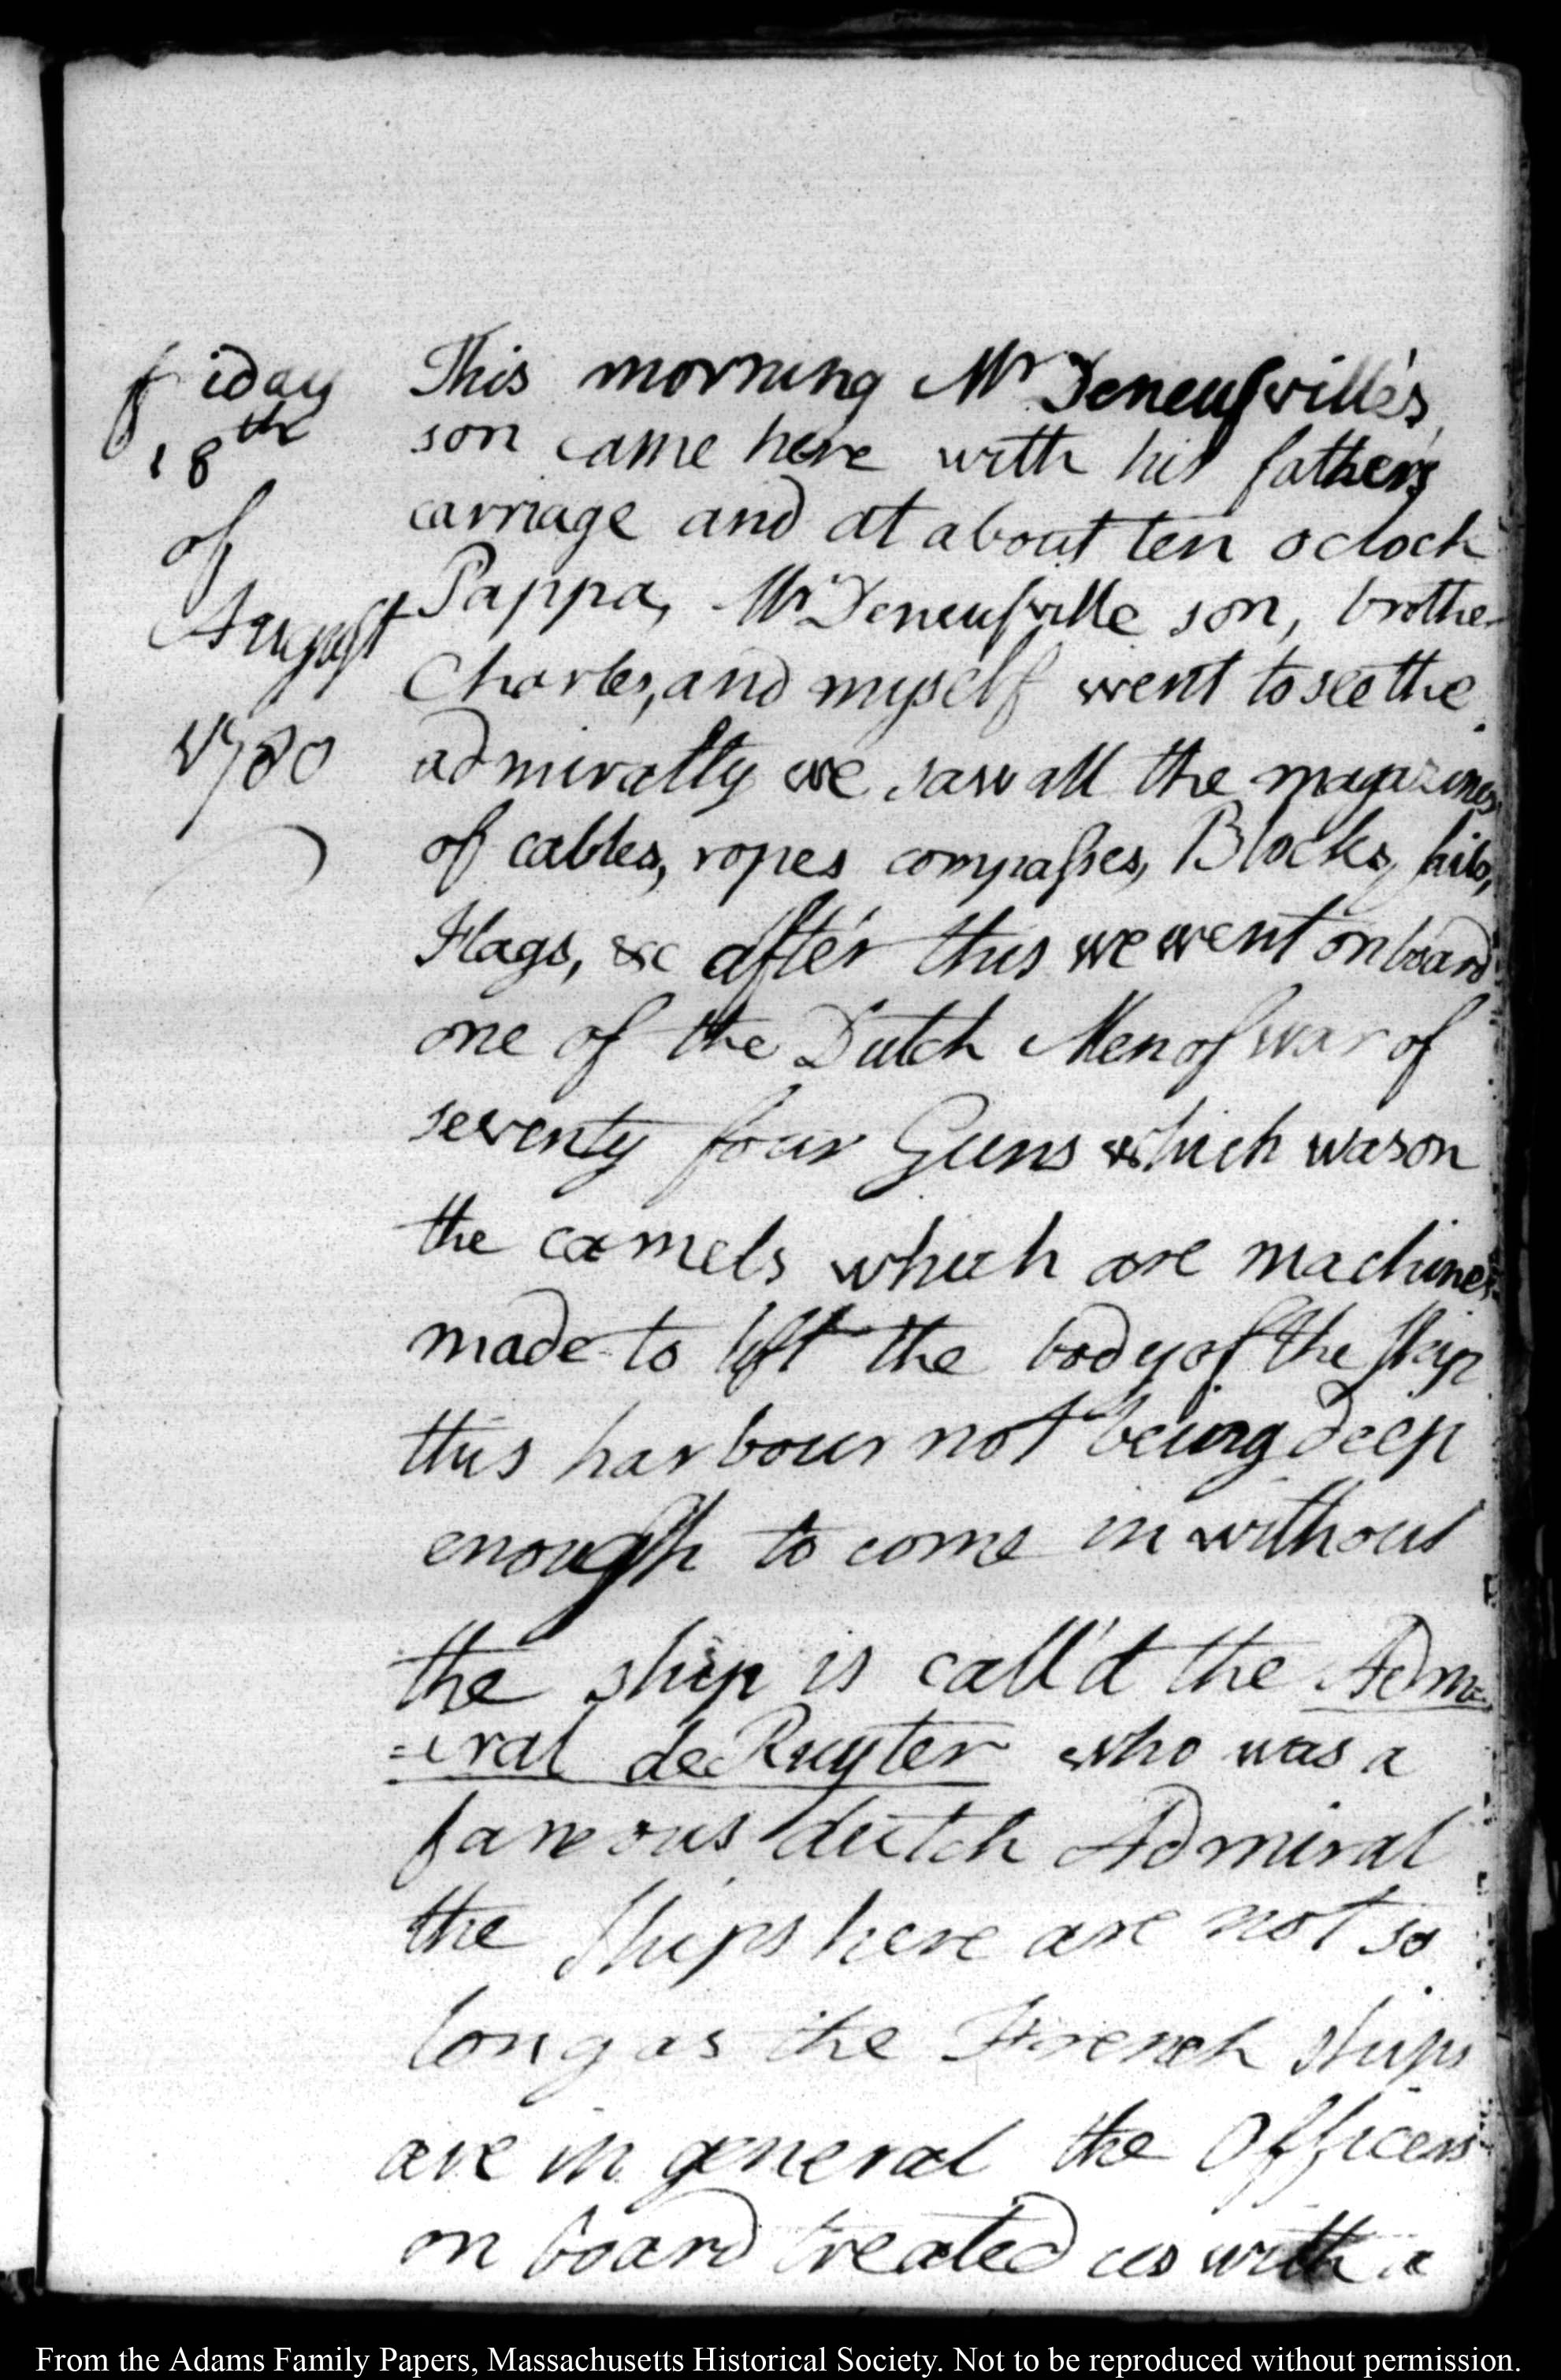 friday
18th
of
August
1780
This morning Mr Deneufville's
son came here with his father's
carriage and at about ten o clock
Pappa, Mr Deneufville son, brother
Charles, and myself went to see the
admiralty we saw all the magazines
of cables, ropes compasses, Blocks, sails,
Flags, &c after this we went on board
one of the Dutch Men of war of
seventy four Guns which was on
the camels which are machines
made to lift the body of the ship
this harbour not being deep
enough to come in without
the ship is call'd the Adm
=iral de Ruyter who was a
famous dutch Admiral
the Ships here are not so
long as the French ships
are in general the Officers
on board treated us with a
From the Adams Family Papers, Massachusetts Historical Society. Not to be reproduced without permission.